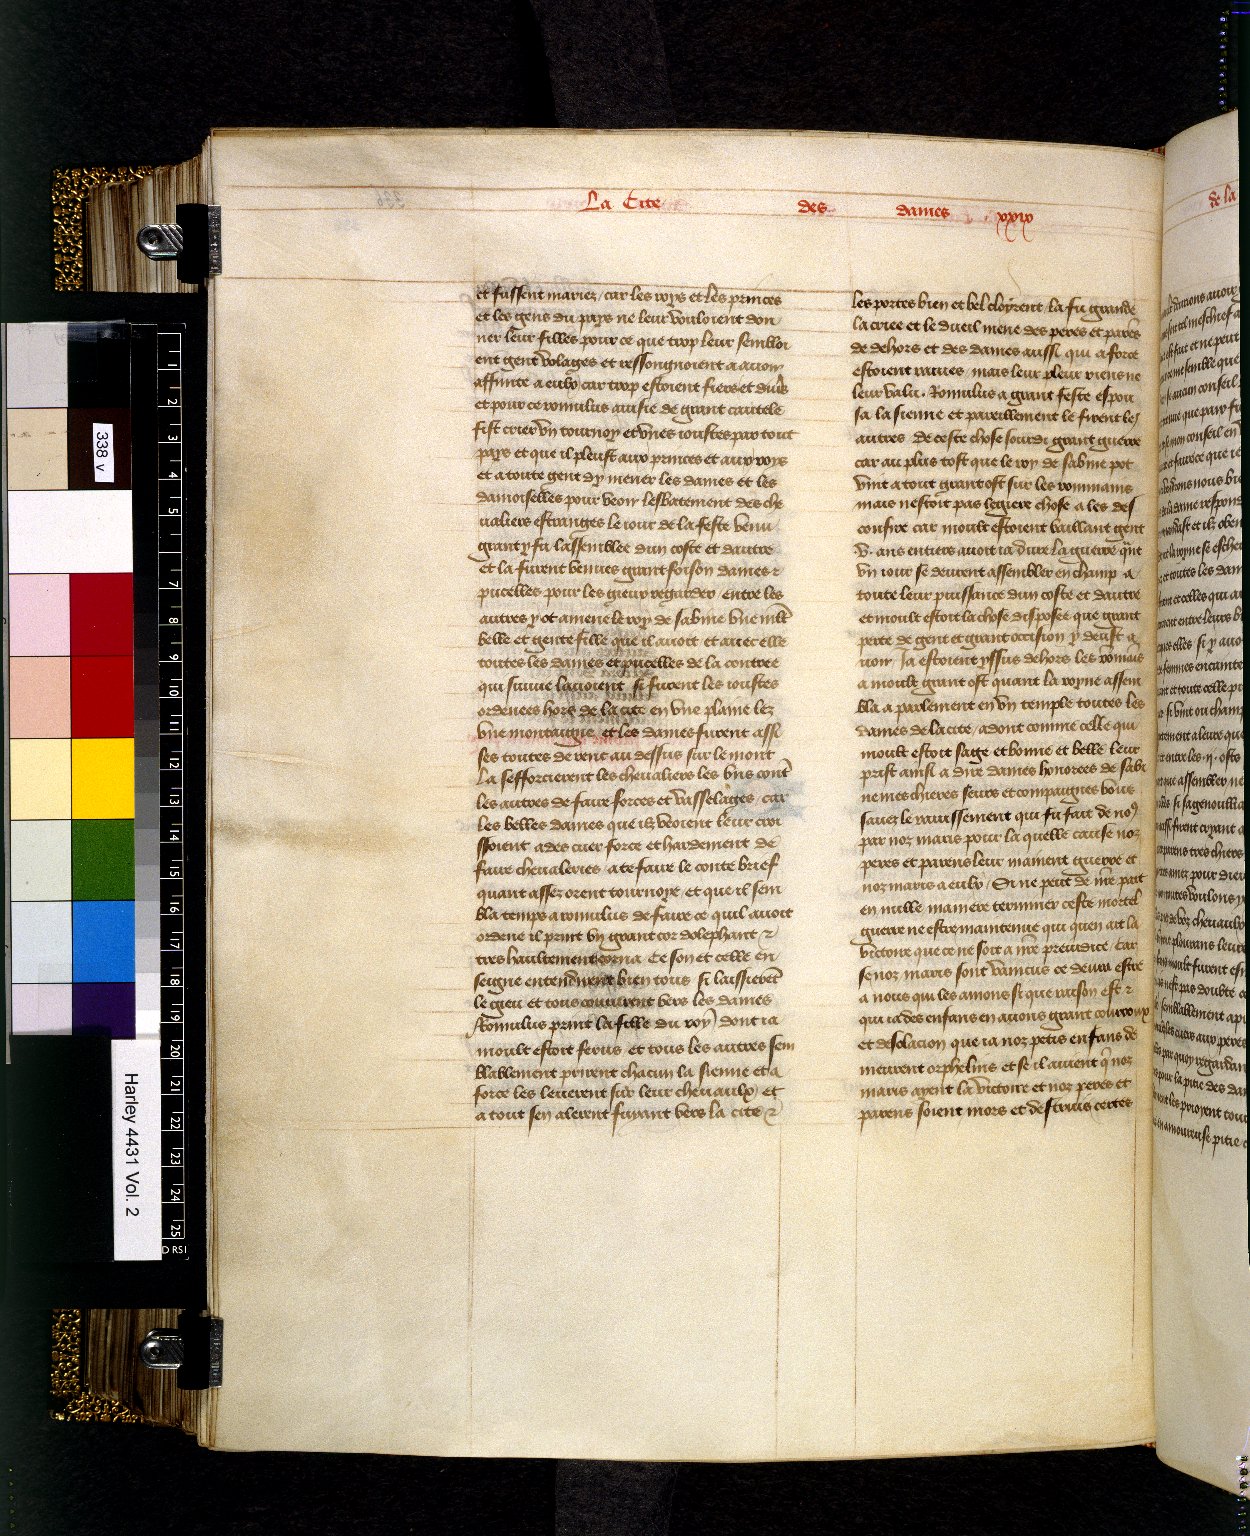 La Cite des dames xxix
et fussent mariez / car les roys et les princes
et les gens du pays ne leur vouloient don
ner leur filles pour ce que trop leur sembloi
ent gent volages et ressongnoient a avoir
affinite a eulx car trop estoient fiers et
et pour ce romulus ausie de grant cautele
fist crier vn tournoy et vnes ioustes par tout
pays et que il pleust aux princes et aux roys
et a toute gent dy mener les dames et les
damoiselles pour veoir lesbatement des che
ualiers estranges le iour de la feste venu
grant y fu lassemblee dun coste et dautre
et la furent venues grant foison dames ⁊
pucelles pour les gieux regarder entre les
autres y ot amene le roy de sabine vne mlt
belle et gente fille que il auoit et auec elle
toutes les dames et pucelles de la contree
qui suiuie lauoient si furent les ioustes
ordenees hors de la cite en vne plaine lez
vne montaigne et les dames furent assi
ses toutes de renc au dessus sur le mont
La sefforcierent les cheualiers les vns cont
les autres de faire forces et vasselages car
les belles dames que ilz veoient leur croi
ssoient ades cuer force et hardement de
faire cheualeries a te faire le conte brief
quant assez orent tournoye et que il sem
bla temps a romulus de faire ce quil auoit
ordene il print vn grant cor dolephant ⁊
tres haultement corna Ce son et celle en
seigne entendirent bien tous si laissierent
le gieu et tous coururent vers les dames
Romulus print la fille du roy dont ia
moult estoit ferus et tous les autres sem
blablement prirent chacun la sienne et a
force les leuerent sur leur cheuaulx et
a tout sen alerent fuyant vers la cite ⁊
les portes bien et bel cloyrent / la fu grande
la criee et le dueil mene des peres et parens
de dehors et des dames aussi qui a force
estoient rauies mais leur pleur riens ne
leur valu. Romulus a grant feste espou
sa la sienne et pareillement le firent les
autres de ceste chose sourdi grant guerre
car au plus tost que le roy de sabine pot
vint a tout grant ost sur les rommains
mais nestoit pas legiere chose a les des
confire car moult estoient vaillant gent
v. ans entiers auoit ia dure la guerre qnt
vn iour se deurent assembler en champ a
toute leur puissance dun coste et dautre
et moult estoit la chose disposee que grant
perte de gent et grant occision y deust a
uoir Ja estoient yssus dehors les romains
a moult grant ost quant la royne assem
bla a parlement en vn temple toutes les
dames de la cite / adont comme celle qui
moult estoit sage et bonne et belle leur
prist ainsi a dire dames honorees de sabi
ne mes chieres seurs et compaignes vous
sauez le rauissement qui fu fait de nos
par noz maris pour la quelle cause noz
peres et parens leur mainent guerre et
noz maris a eulx / Si ne peut de nre part
en nulle maniere terminer ceste mortel
guerre ne estre maintenue qui quen ait la
victoire que ce ne soit a nre preiudice Car
se noz maris sont vaincus ce deura estre
a nous qui les amons si que raison est ⁊
qui ia des enfans en auons grant courroux
et desolacion que ia noz petis enfans de
meurent orphelins et se il auient q noz
maris ayent la victoire et noz peres et
parens soient mors et destruis certes
de la
338 v
Harley 4431 Vol. 2
1
2
3
4
5
7
8
9
10
11
12
13
14
15
16
17
18
19
20
21
22
23
24
25